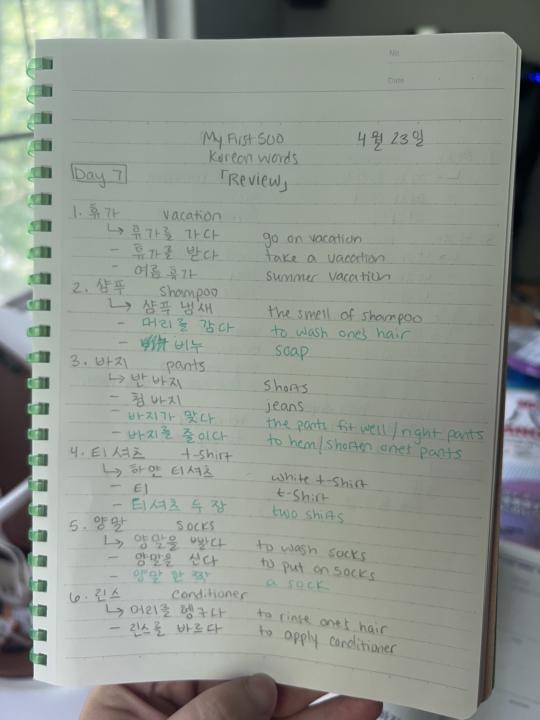 No.
Date
My First 500 4월 23일
Korean Words
Day 7 「Review」
1. 휴가 vacation
↳ 휴가를 가다 go on vacation
- 휴가를 받다 take a vacation
- 여름 휴가 summer vacation
2. 샴푸 shampoo
↳ 샴푸 냄새 the smell of shampoo
- 머리를 감다 to wash one's hair
- 비누 soap
3. 바지 pants
↳ 반 바지 shorts
- 청 바지 jeans
- 바지가 맞다 the pants fit well/right pants
- 바지를 줄이다 to hem/shorten one's pants
4. 티셔츠 t-shirt
↳ 하얀 티셔츠 white t-shirt
- 티 t-shirt
- 티셔츠 두 장 two shirts
5. 양말 socks
↳ 양말을 빨다 to wash socks
- 양말을 신다 to put on socks
- 양말 한 짝 a sock
6. 린스 conditioner
↳ 머리를 헹구다 to rinse one's hair
- 린스를 바르다 to apply conditioner